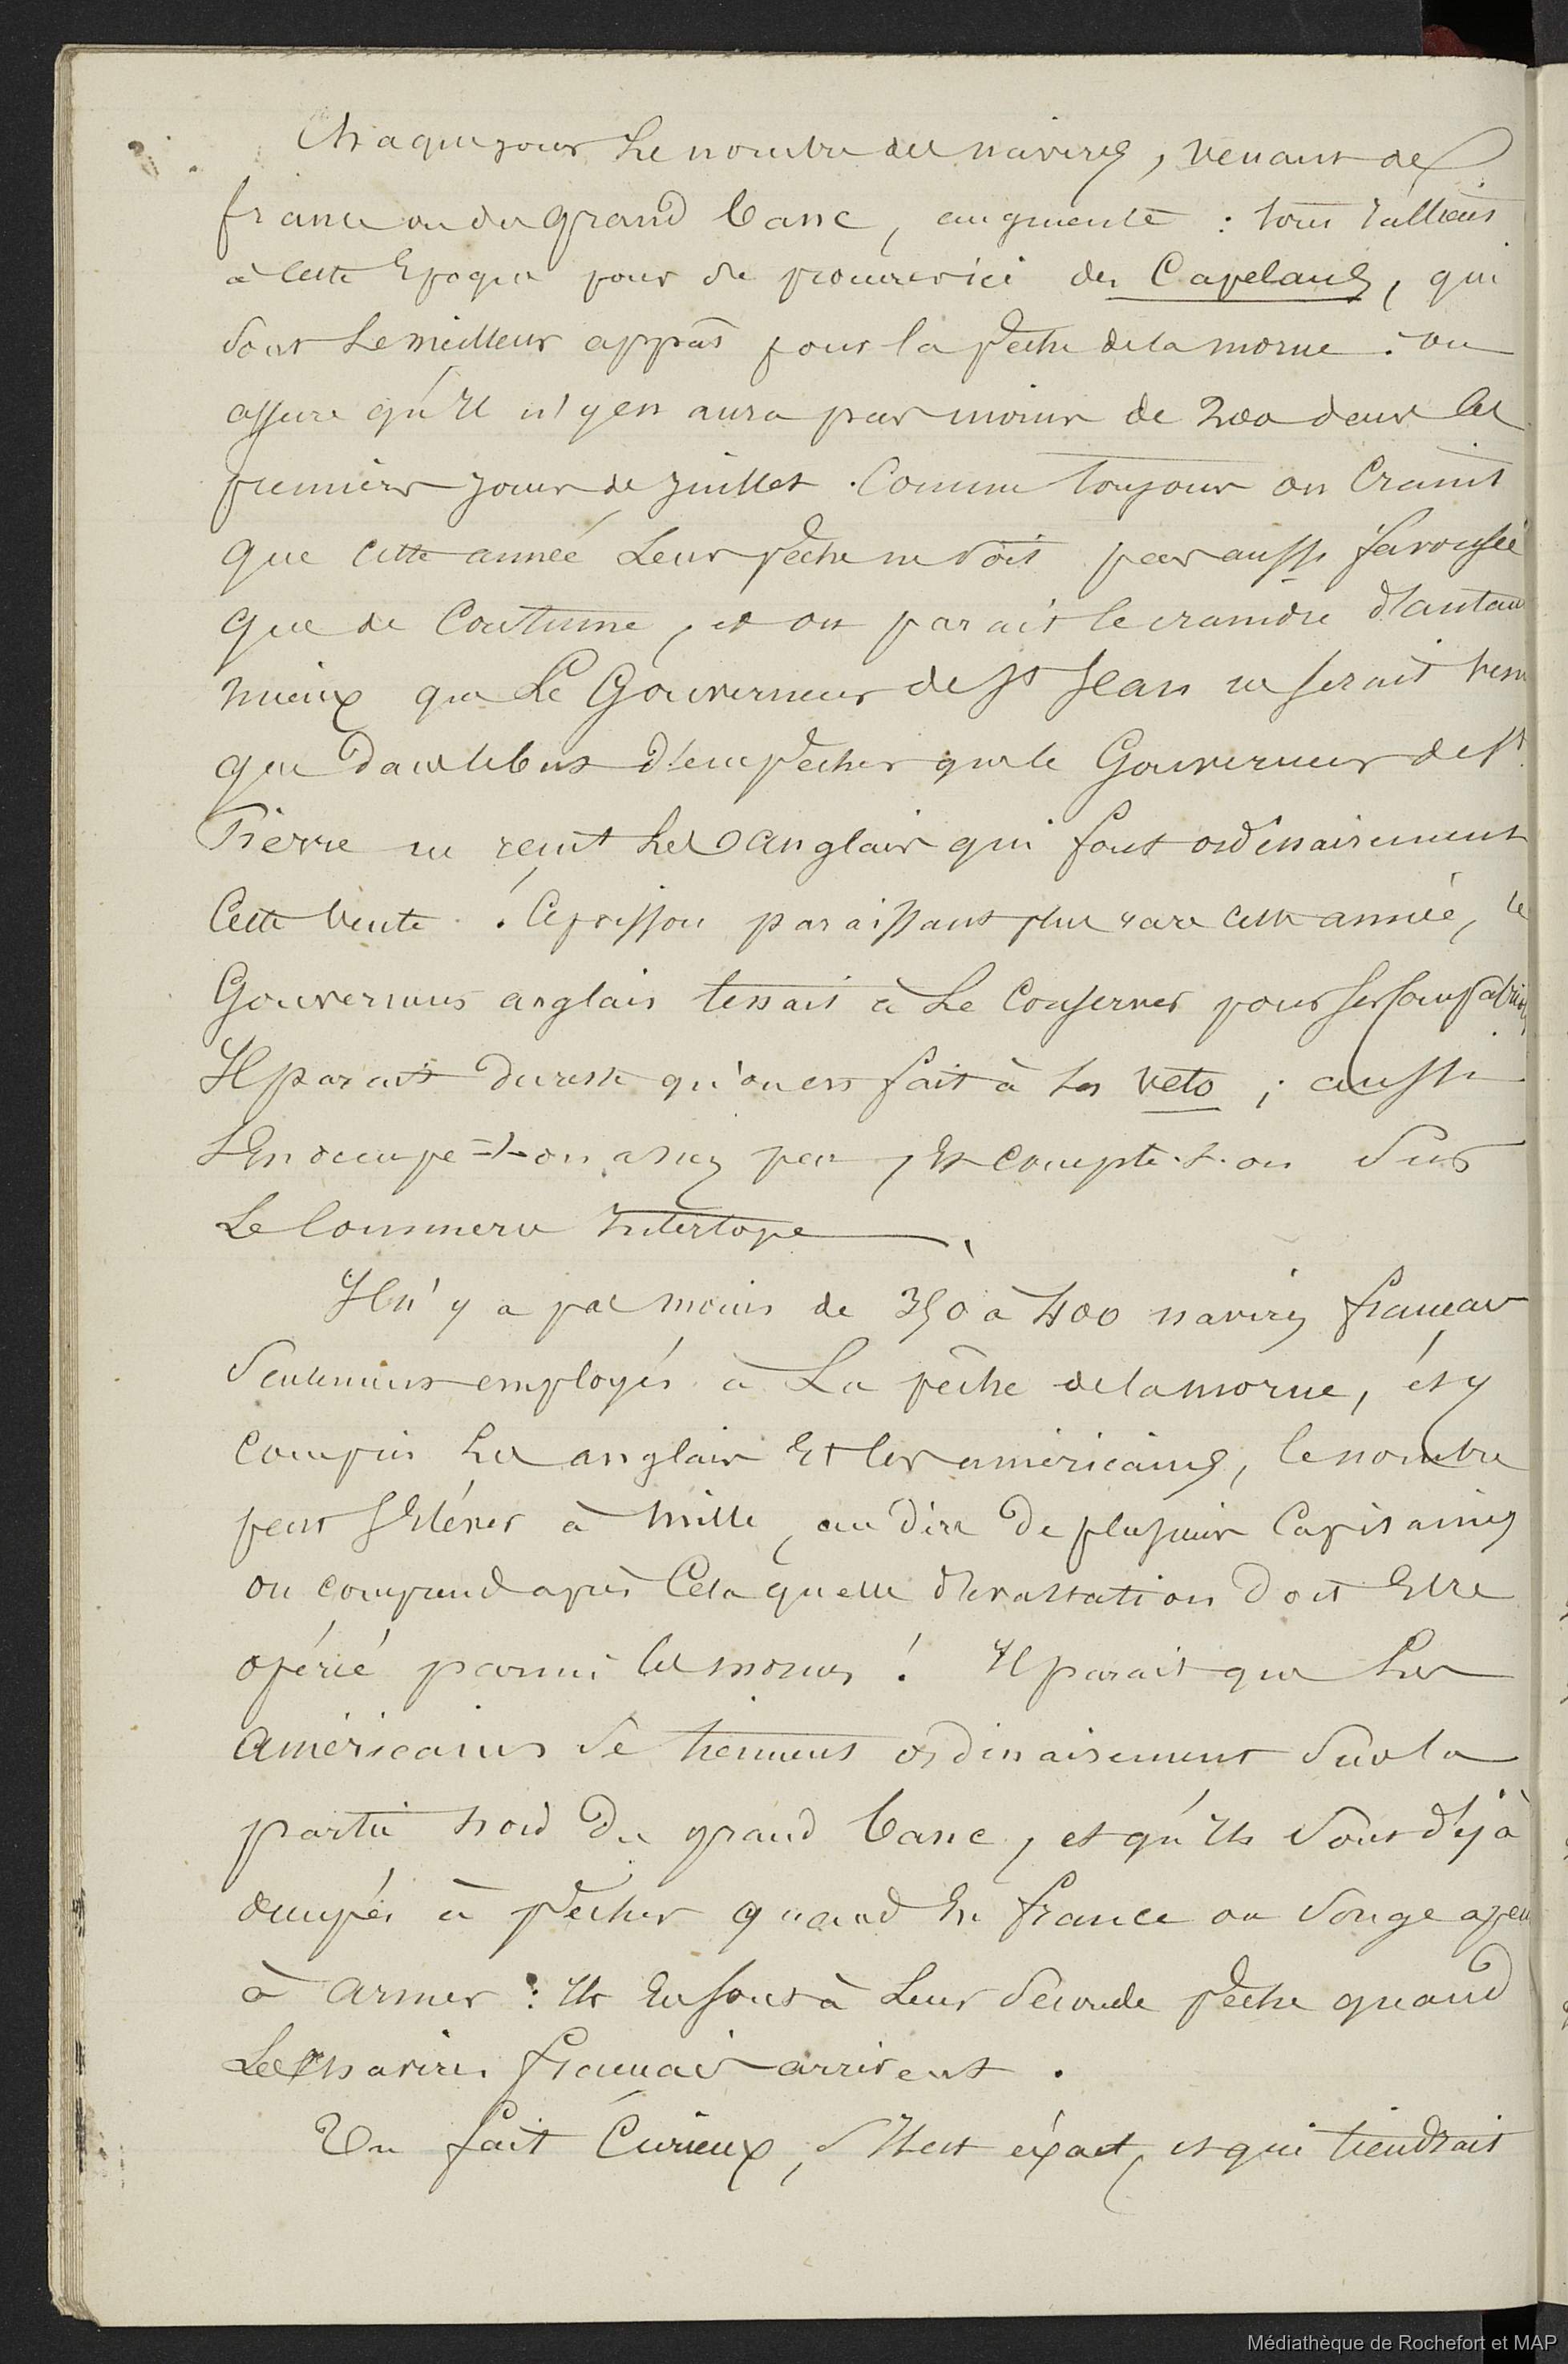 Chaque jour le nombre des navires, venant de
france ou du grand banc, augmente : tous rallient
à cette Epoque pour se procurer ici des Capelans, qui
sont le meilleur appâs pour la pêche de la morue : on
assure qu'il n'y en aura pas moins de 200 dans les
premiers jours de juillet. Comme toujours on craint
que cette année leur pêche ne soit pas aussi
que de coutume, et on parait le craindre d'autant
mieux que le Gouverneur de St Jean ne serait venu
que dans le but d'empêcher que le Gouverneur de St.
Pierre ne reçut les anglais qui font ordinairement
cette vente. Ce poisson paraissant plus rare cette année, le
Gouverneur anglais tenait à le conserver pour ses compatriotes
Il parait du reste qu'on en fait à son veto ; aussi
s'En occupe-t-on assez peu, Et compte-t-on sur
le commerce interlope.
Il n'y a pas moins de 350 à 400 navires français
seulement employés à la pêche de la morue, et y
compris les anglais Et les américains, le nombre
peut s'Elever à mille, au dire de plusieurs Capitaines
on comprend après cela quelle dévastation doit Etre
opérée parmi les morues ! Il parait que les
américains se tiennent ordinairement sur la
partie nord du grand banc, et qu'ils sont déjà
occupés à pêcher quand En france on songe a peu
à armer : ils En sont à leur seconde pêche quand
les navires français arrivent.
Un fait curieux, s'Il est éxact, et qui tiendrait
Médiathèque de Rochefort et MAP